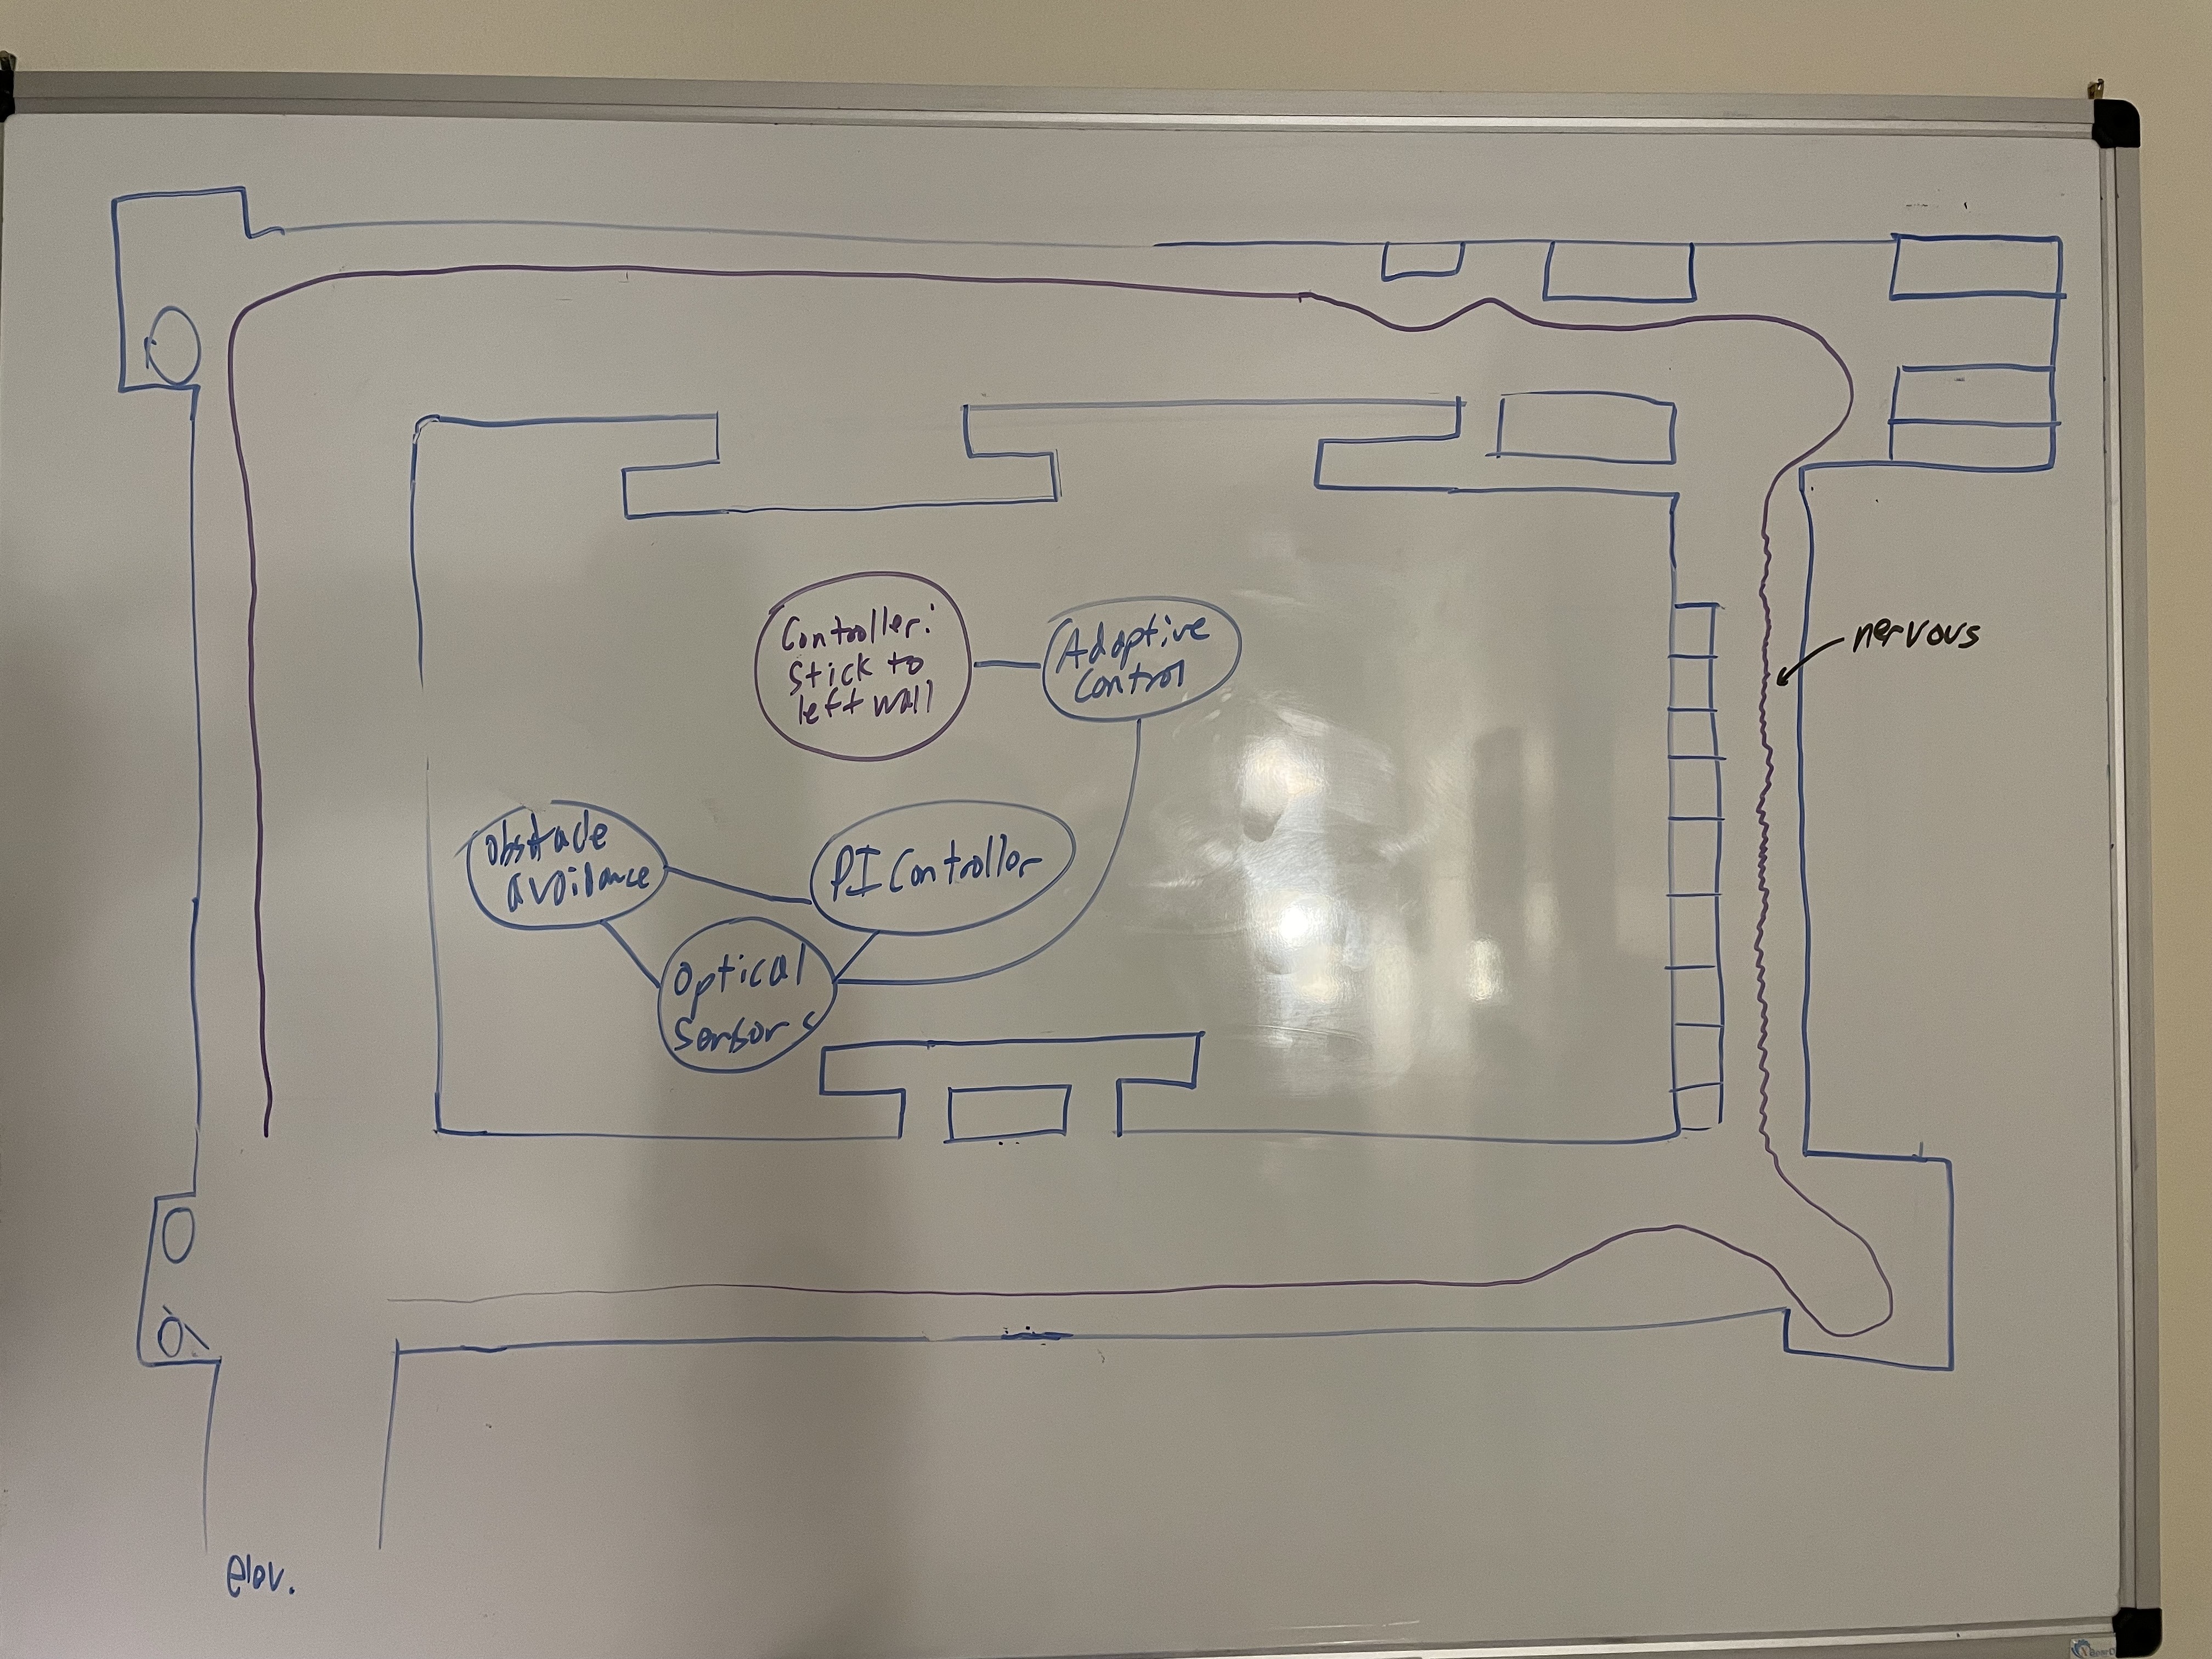 Controller:
Stick to
left wall
Adaptive
Control
nervous
Obstacle
avoidance
PI Controller
Optical
Sensors
elev.